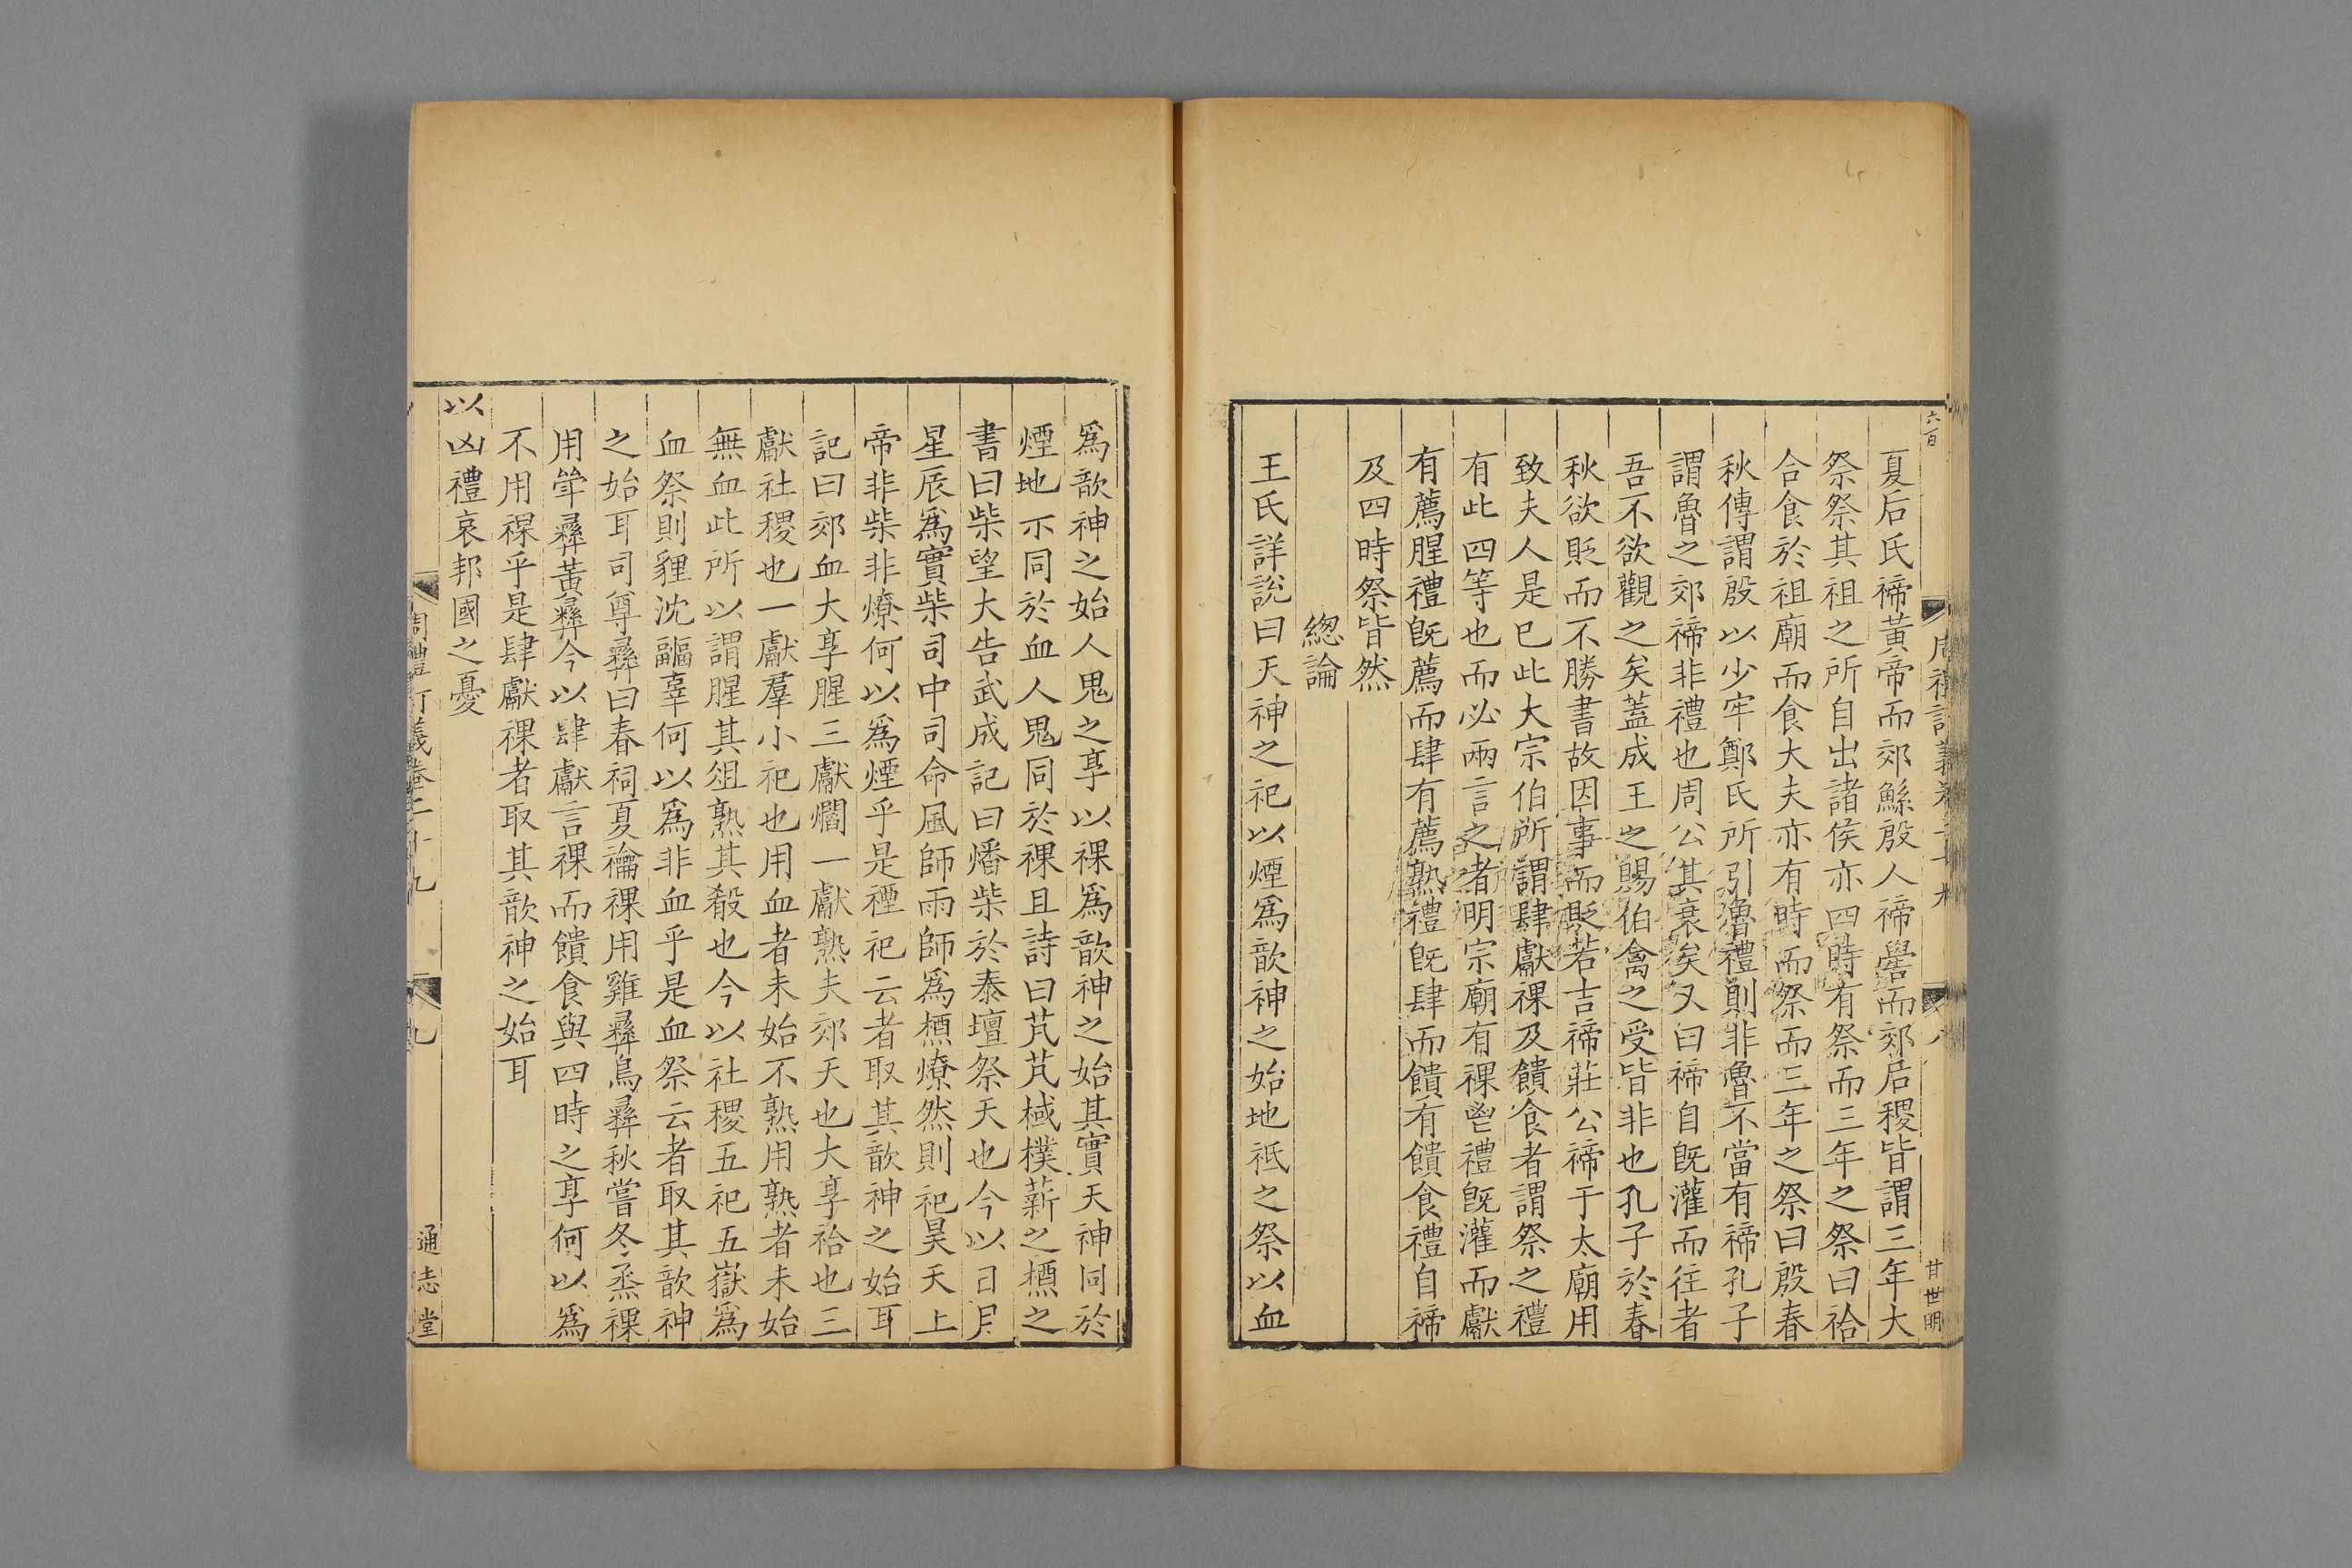 六百
周禮訂義卷二十九
八
甘世明
夏后氏禘黃帝而郊鯀殷人禘嚳而郊后稷皆謂三年大
祭祭其祖之所自出諸侯亦四時有祭而三年之祭曰祫
合食於祖廟而食大夫亦有時而祭而三年之祭曰殷春
秋傳謂殷以少牢鄭氏所引魯禮則非魯不當有禘孔子
謂魯之郊禘非禮也周公其衰矣又曰禘自旣灌而往者
吾不欲觀之矣蓋成王之賜伯禽之受皆非也孔子於春
秋欲貶而不勝書故因事而貶若吉禘莊公禘于太廟用
致夫人是已此大宗伯所謂肆獻祼及饋食者謂祭之禮
有此四等也而必兩言之者明宗廟有祼鬯禮旣灌而獻
有薦腥禮旣薦而肆有薦熟禮旣肆而饋有饋食禮自禘
及四時祭皆然
緫論
王氏詳說曰天神之祀以煙爲歆神之始地祇之祭以血
爲歆神之始人鬼之享以祼爲歆神之始其實天神同於
煙地示同於血人鬼同於祼且詩曰芃芃棫樸薪之槱之
書曰柴望大告武成記曰燔柴於泰壇祭天也今以日月
星辰爲實柴司中司命風師雨師爲槱燎然則祀昊天上
帝非柴非燎何以爲煙乎是禋祀云者取其歆神之始耳
記曰郊血大享腥三獻爓一獻熟夫郊天也大享祫也三
獻社稷也一獻羣小祀也用血者未始不熟用熟者未始
無血此所以謂腥其俎熟其殽也今以社稷五祀五嶽爲
血祭則貍沈疈辜何以爲非血乎是血祭云者取其歆神
之始耳司尊彝曰春祠夏禴祼用雞彝鳥彝秋嘗冬烝祼
用斝彝黃彝今以肆獻言祼而饋食與四時之享何以爲
不用祼乎是肆獻祼者取其歆神之始耳
以凶禮哀邦國之憂
周禮訂義卷二十九
九
通志堂